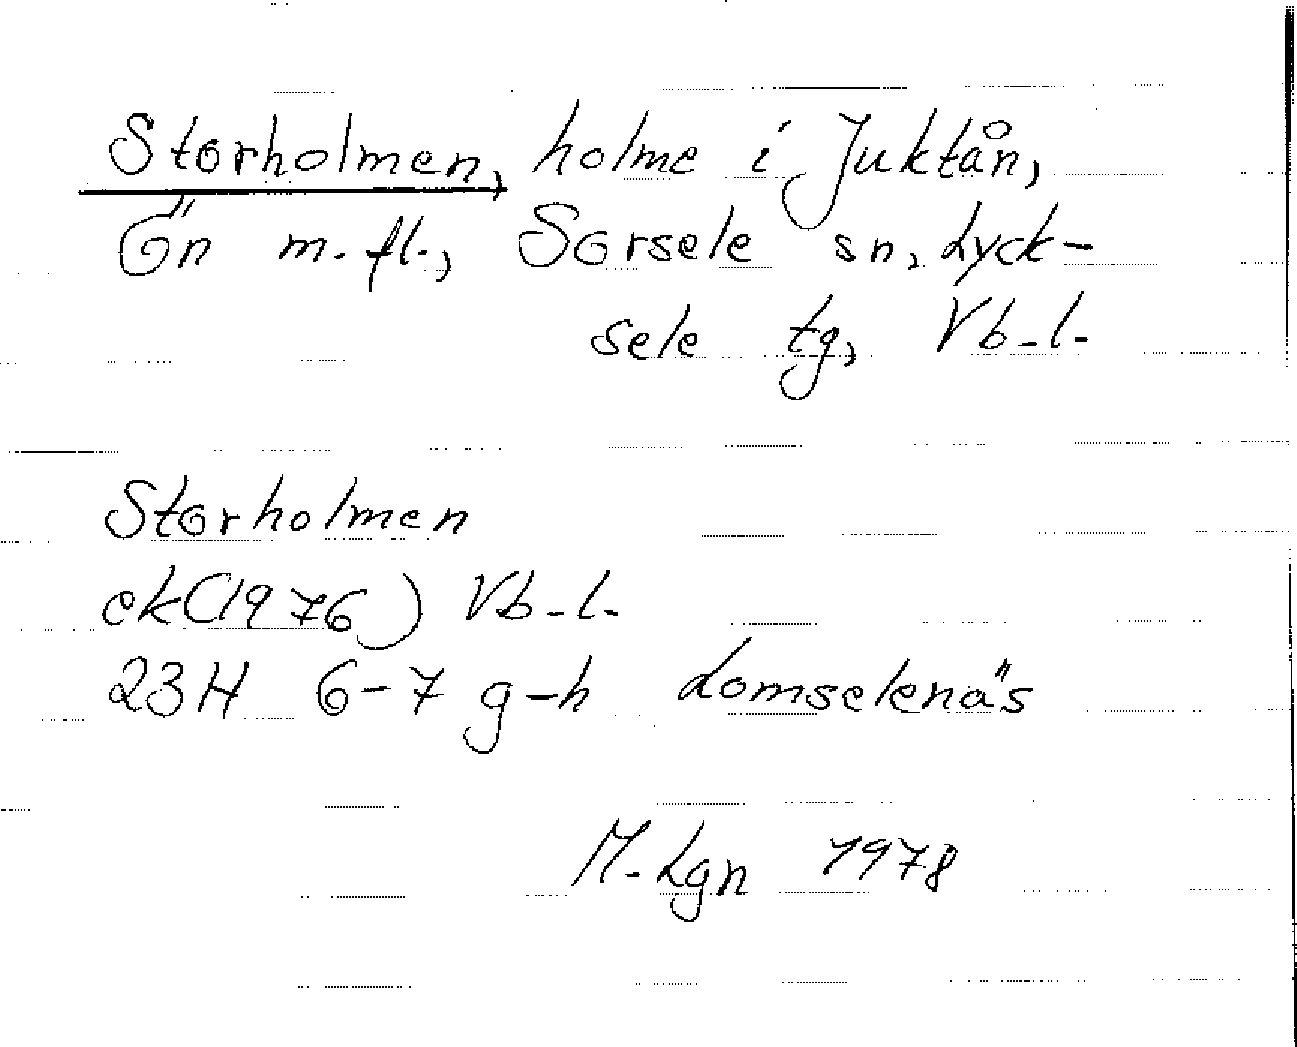 Storholmen, holme i Juktån,
Ön m. fl., Sorsele sn, Lyck-
sele tg, Vb. l.
Storholmen
ek(1976) Vb. l.
23H 6-7 g-h Lomselenäs
M. Lgn 1978